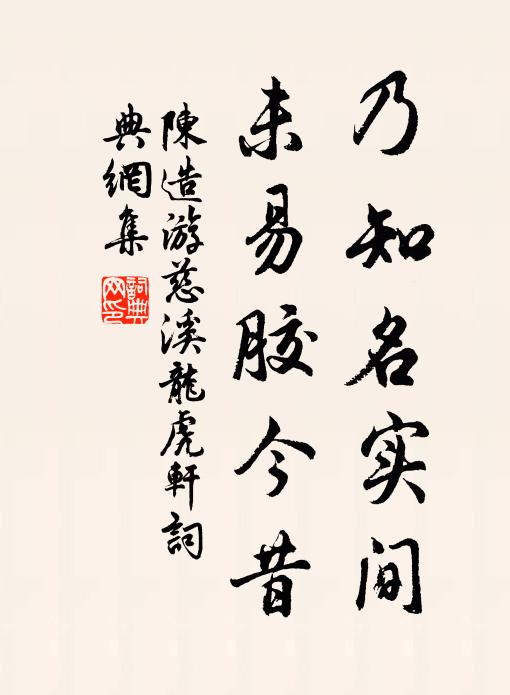 乃知名实间
未易胶今昔
陳造游慈溪龍虎軒詞
典網集
詞典
网印